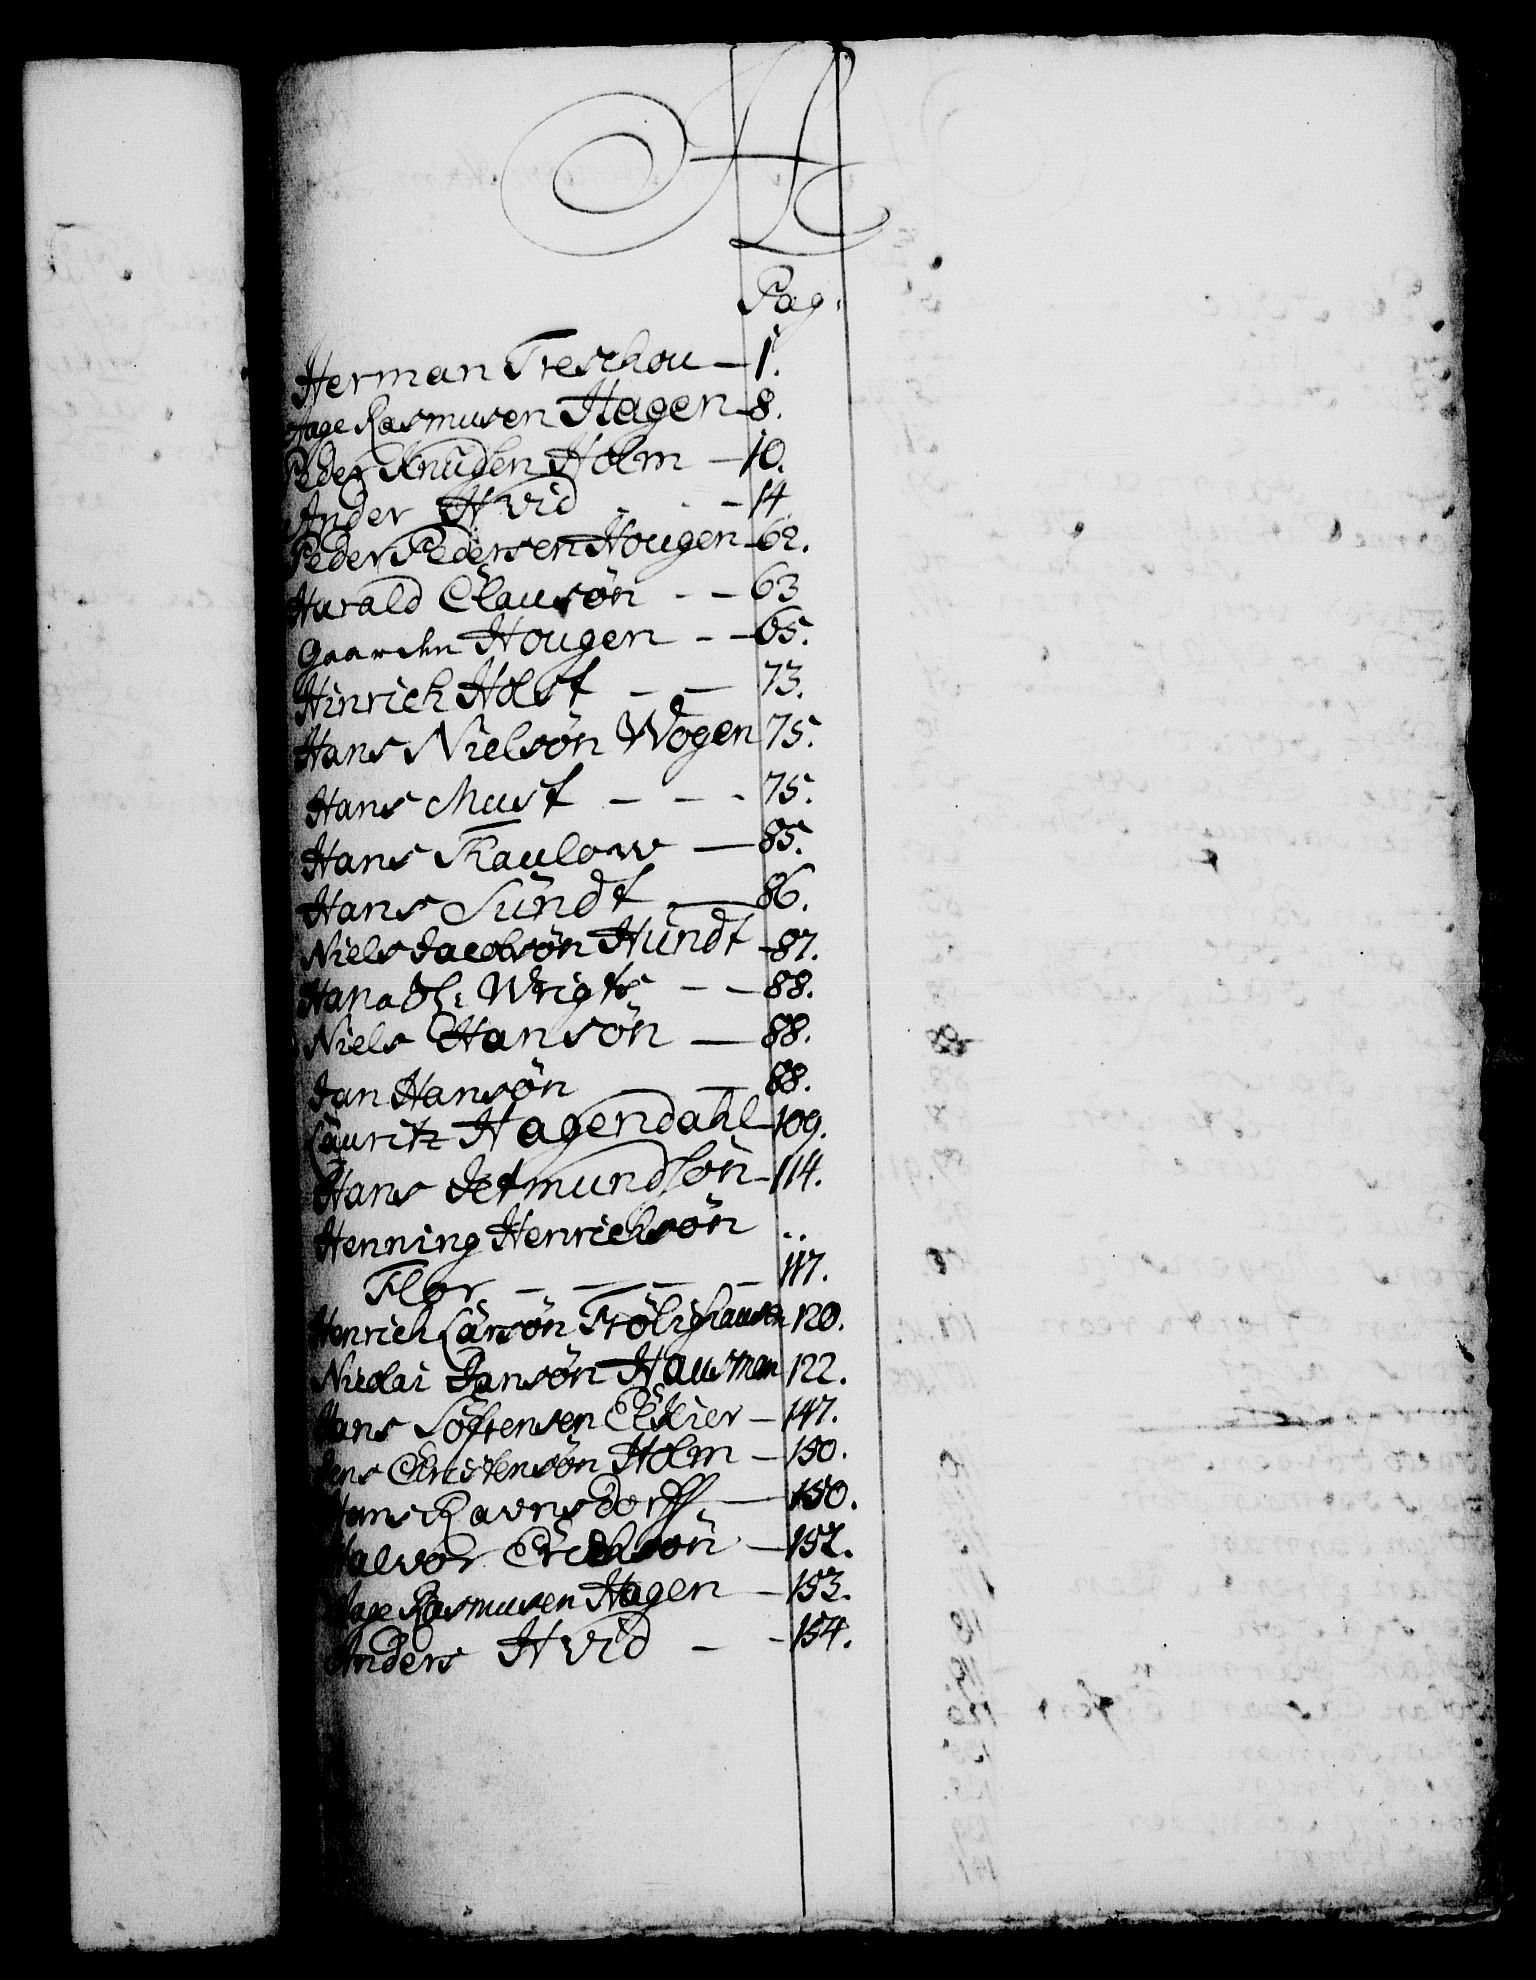 H
Pag:
Herman Treschou — 1.
Aage Rasmusen Hagen — 8.
Peder Knudsen Holm — 10.
Ander Hvid - - - 14
Peder Pedersen Hougen — 62.
Harald Clausøn - — 63
Hougen - — 65.
Hinrich Holst — — 73.
Hans Nielsøn Wogen 75.
Hans Must — - - 75.
Hans Thaulow — 85.
Hans Sundt — 86.
Niels Jacobsøn Hundt — 87.
Hans Wrigts - — 88.
Niels Hansøn — 88.
Jan Hansøn — — 88.
Lauritz Hagendahl — 109.
Hans Jetmundsøn — 114.
Henning Henrichsøn
Flor — — — — 117.
Henrich Larsøn Frølighausen 120.
Nicolai Jansøn Hausman 122.
Hans Søfrensen — 147.
Jens Christensøn Holm — 150.
Hans Ravnsdorff — 150.
Halvor Erichsøn — 152.
Aage Rasmusen Hagen — 153.
Anders Hvid - - 154.